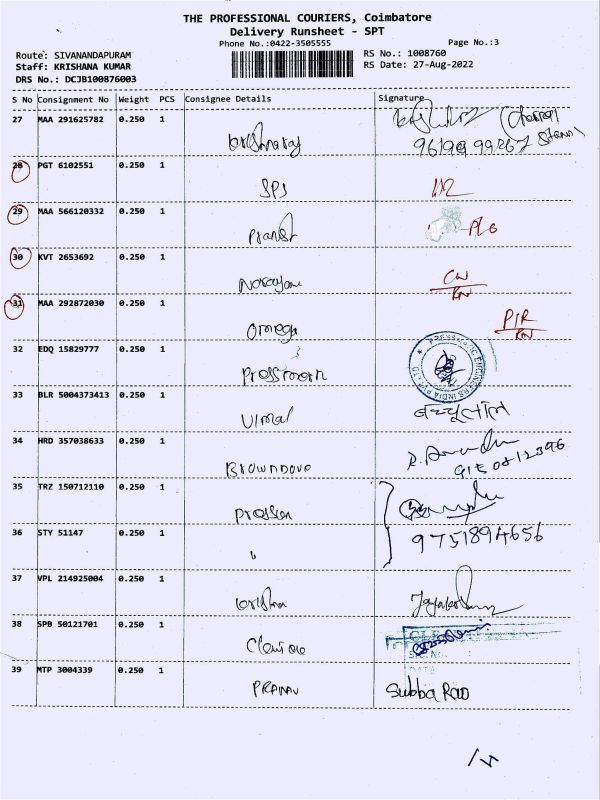 THE PROFESSIONAL COURIERS, Coimbatore
Delivery Runsheet - SPT
Phone No.:0422-3505555
Page No.:3
Route: SIVANANDAPURAM
RS No.: 1008760
Staff: KRISHANA KUMAR
RS Date: 27-Aug-2022
DRS No.: DCJB100876003
S No Consignment No Weight PCS Consignee Details Signature
27 MAA 291625782 0.250 1
28 PGT 6102551 0.250 1
SPS
29 MAA 566120332 0.250 1
30 KVT 2653692 0.250 1
Narayan
31 MAA 292872030 0.250 1
Omega
32 EDQ 15829777 0.250 1
33 BLR 5004373413 0.250 1
Vimal
34 HRD 357038633 0.250 1
35 TRZ 150712110 0.250 1
36 STY 51147 0.250 1
9751894656
37 VPL 214925004 0.250 1
Krishna
38 SPB 50121701 0.250 1
39 MTP 3004339 0.250 1
PRANAV Subba Rao